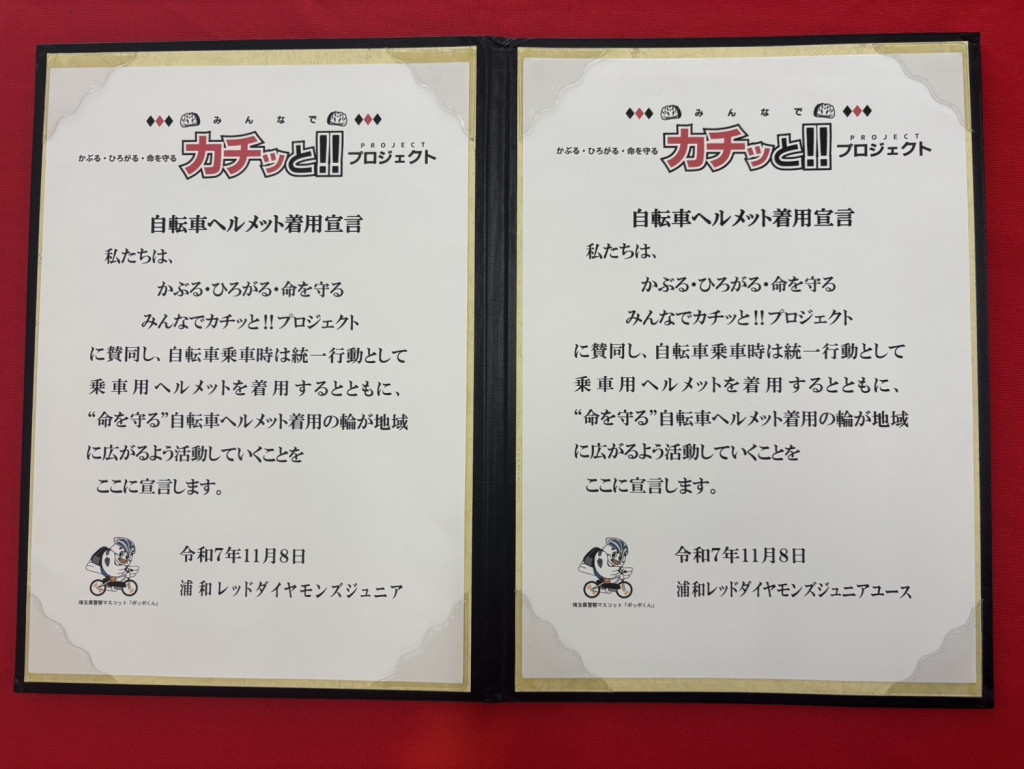 みんなで
かぶる・ひろがる・命を守る カチッと!! プロジェクト
PROJECT
自転車ヘルメット着用宣言
私たちは、
かぶる・ひろがる・命を守る
みんなでカチッと!!プロジェクト
に賛同し、自転車乗車時は統一行動として
乗車用ヘルメットを着用するとともに、
“命を守る”自転車ヘルメット着用の輪が地域
に広がるよう活動していくことを
ここに宣言します。
令和7年11月8日
浦和レッドダイヤモンズジュニア
埼玉県警察マスコット「ポッポくん」
みんなで
かぶる・ひろがる・命を守る カチッと!! プロジェクト
PROJECT
自転車ヘルメット着用宣言
私たちは、
かぶる・ひろがる・命を守る
みんなでカチッと!!プロジェクト
に賛同し、自転車乗車時は統一行動として
乗車用ヘルメットを着用するとともに、
“命を守る”自転車ヘルメット着用の輪が地域
に広がるよう活動していくことを
ここに宣言します。
令和7年11月8日
浦和レッドダイヤモンズジュニアユース
埼玉県警察マスコット「ポッポくん」